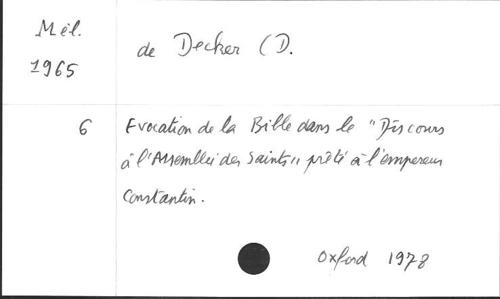 Mél.
1965
de Decker (D.
6
Evocation de la Bible dans le "Discours
à l'Assemblée des Saints" prêté à l'empereur
Constantin.
Oxford 1978